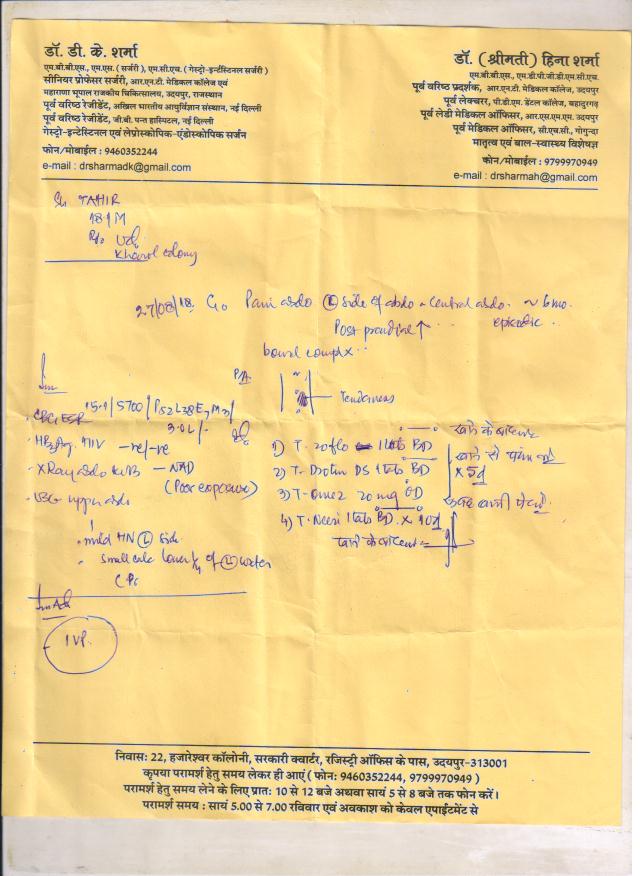 डॉ. डी. के. शर्मा
एम.बी.बी.एस., एम.एस. ( सर्जरी ), एम.सी.एच. ( गेस्ट्रो-इन्टेंस्टिनल सर्जरी )
सीनियर प्रोफेसर सर्जरी, आर.एन.टी. मेडिकल कॉलेज एवं
महाराणा भूपाल राजकीय चिकित्सालय, उदयपुर, राजस्थान
पूर्व वरिष्ठ रेजीडेंट, अखिल भारतीय आयुर्विज्ञान संस्थान, नई दिल्ली
पूर्व वरिष्ठ रेजीडेंट, जी.बी. पन्त हास्पिटल, नई दिल्ली
गेस्ट्रो-इन्टेस्टिनल एवं लेप्रोस्कोपिक-एंडोस्कोपिक सर्जन
फोन/मोबाईल : 9460352244
e-mail : drsharmadk@gmail.com
डॉ. (श्रीमती) हिना शर्मा
एम.बी.बी.एस., एम.डी.पी.जी.डी.एम.सी.एच.
पूर्व वरिष्ठ प्रदर्शक, आर.एन.टी. मेडिकल कॉलेज, उदयपुर
पूर्व लेक्चरर, पी.डी.एम. डेंटल कॉलेज, बहादुरगढ़
पूर्व लेडी मेडिकल ऑफिसर, आर.एस.एम.एम. उदयपुर
पूर्व मेडिकल ऑफिसर, सी.एच.सी., गोगुन्दा
मातृत्व एवं बाल-स्वास्थ्य विशेषज्ञ
फोन/मोबाईल : 9799970949
e-mail : drsharmah@gmail.com
TAHIR
18/M
Kharol colony
27/08/18. C/o Pain abdo side of abdo - central abdo. ~ 6 mo.
Post prandial ↑ episodic
bowel
P/A
Tenderness
15.1/5700/P52L38E7M3/
3.0L/-
CBC, ESR
HBsAg, HIV -re/-re
X Ray abdo KUB - NAD
(Poor exposure)
USG upper abdo
mild HN (L) side
small calc lower 1/4 of (L) ureter
1) T. Zoflo 1 tab BD
2) T. Drotin DS 1 tab BD
3) T. Omez 20 mg OD
x 5d
4) T. Neeri 1 tab BD x 10d
खाने के बाद
IVP.
निवास: 22, हजारेश्वर कॉलोनी, सरकारी क्वार्टर, रजिस्ट्री ऑफिस के पास, उदयपुर-313001
कृपया परामर्श हेतु समय लेकर ही आएं ( फोन: 9460352244, 9799970949 )
परामर्श हेतु समय लेने के लिए प्रातः 10 से 12 बजे अथवा सायं 5 से 8 बजे तक फोन करें।
परामर्श समय : सायं 5.00 से 7.00 रविवार एवं अवकाश को केवल एपाईंटमेंट से